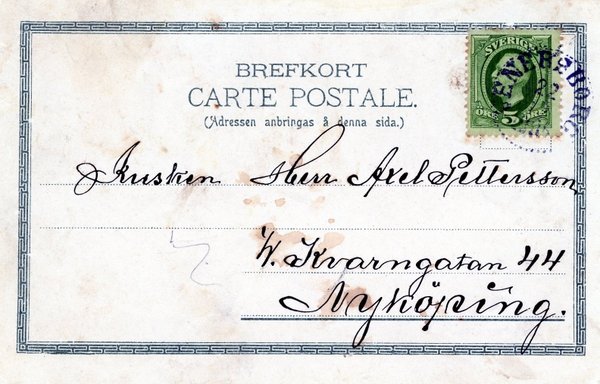 BREFKORT
CARTE POSTALE.
(Adressen anbringas å denna sida.)
SVERIGE
ÖRE 5 ÖRE
Kusken Herr Axel Pettersson
W. Kvarngatan 44
Nyköping.